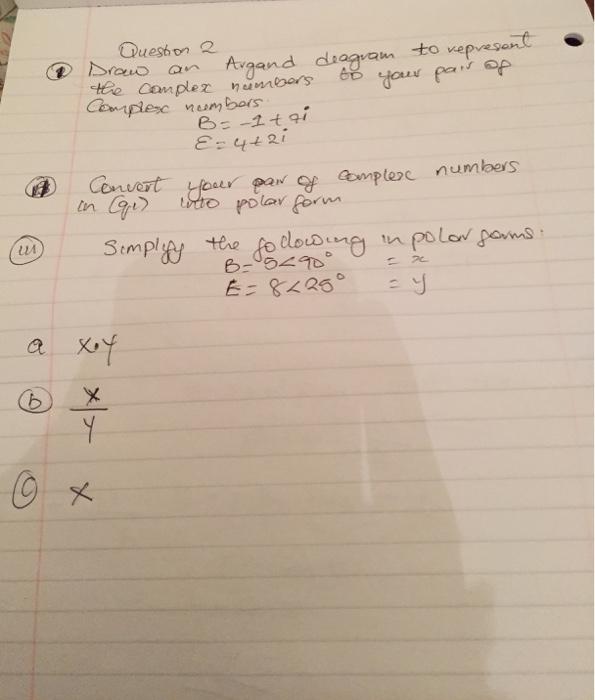 Question 2
① Draw an Argand diagram to represent
the complex numbers to your pair of
Complex numbers.
B = -1 + 7i
E = 4 + 2i
Convert your pair of complex numbers
in (qi) into polar form
(iii) Simplify the following in polar forms.
B = 5<90° = x
E = 8<25° = y
a x.y
(b) x
y
(c) x